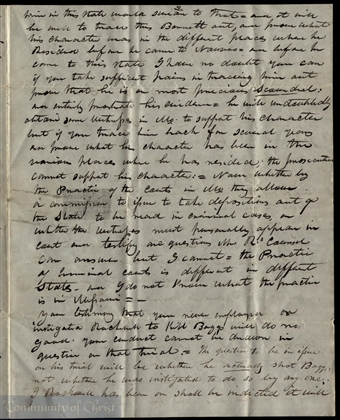 him in this State would swear to that = and it will
be well to trace this Bennett out, and prove what
his character was in the different places where he
Resided before he came to Nauvoo = and before he
come to this State I have no doubt you can
if you take sufficient pains in tracing him out
prove that he is a most precious Scoundrel;
and entirely prostrate his evidence = he will undoubtedly
obtain some Witnesses in Mo: to support his character
but if you trace him back for several years
and prove what his character has been in the
various places where he has resided; the prosecution
cannot support his character: = Now whether by
the Practice of the Courts in Mo: they allow
a commission to issue to take depositions out of
the State to be read in criminal cases, or
whether the witnesses must personally appear in
court and testify, is a question Mr R's Counsel
can answer but I cannot = the Practice
of Criminal courts is different in different
States – and I do not know what the practice
is in Missouri = –
Your testimony that you never employed or
instigated Rockwell to kill Boggs will do no
good: your conduct cannot be drawn in
question on that trial: = The question to be in issue
on his trial will be whether he actually shot Boggs,
not whether he was instigated to do so by any one;
If Rockwell has been or shall be indicted it will
Community of Christ